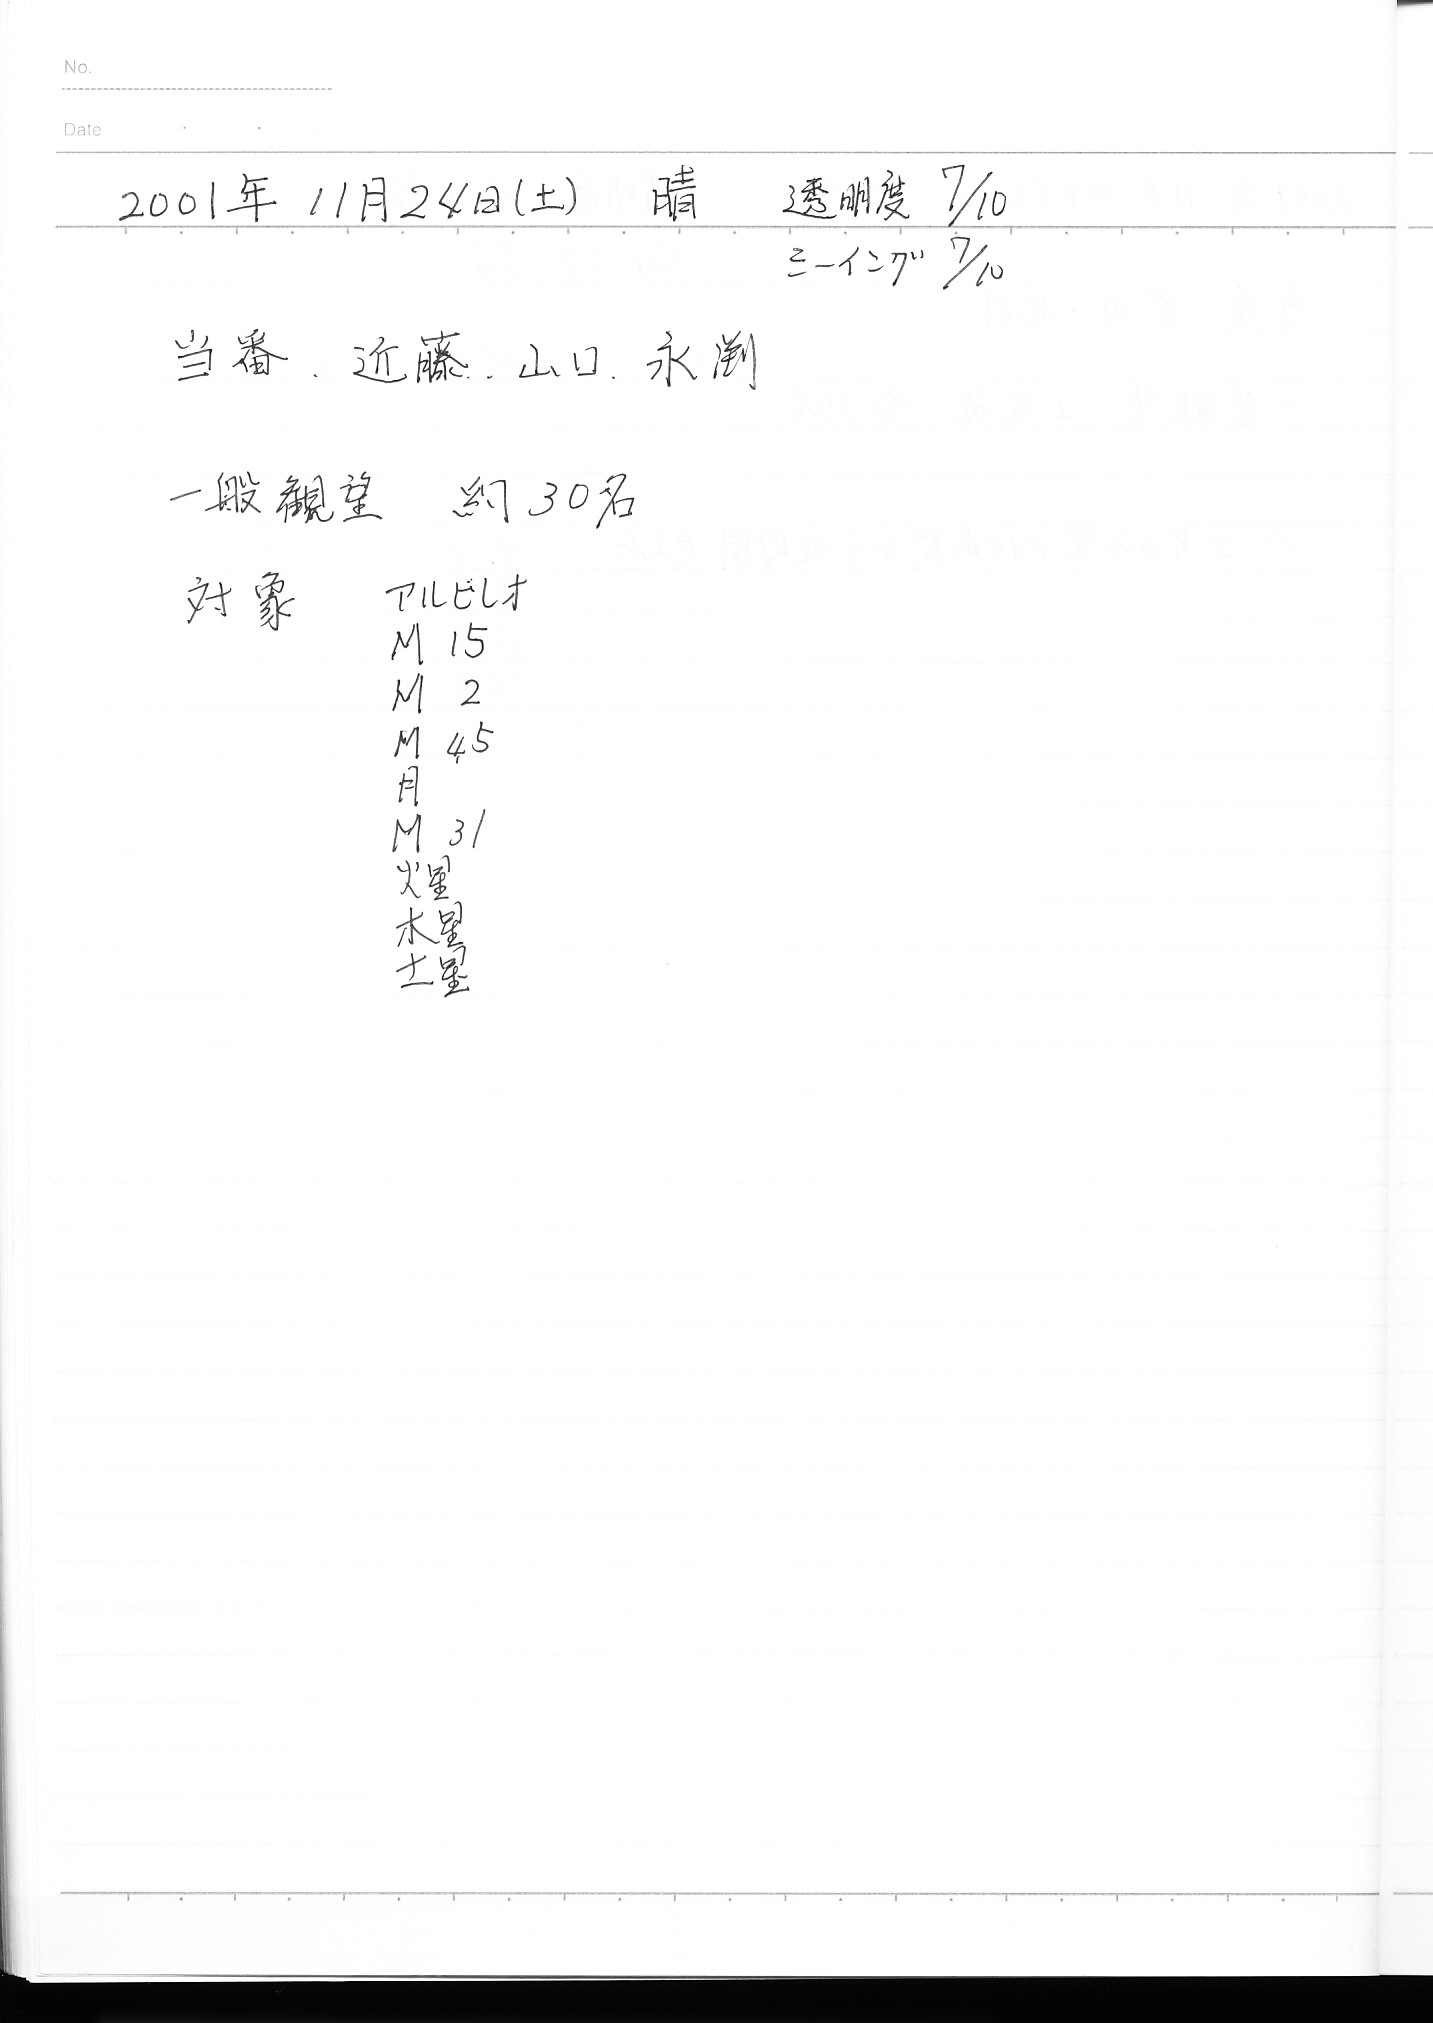 No.
Date
2001年 11月24日(土) 晴 透明度 7/10
シーイング 7/10
当番. 近藤. 山口. 永渕
一般観望 約30名
対象 アルビレオ
M 15
M 2
M 45
月
M 31
火星
木星
土星